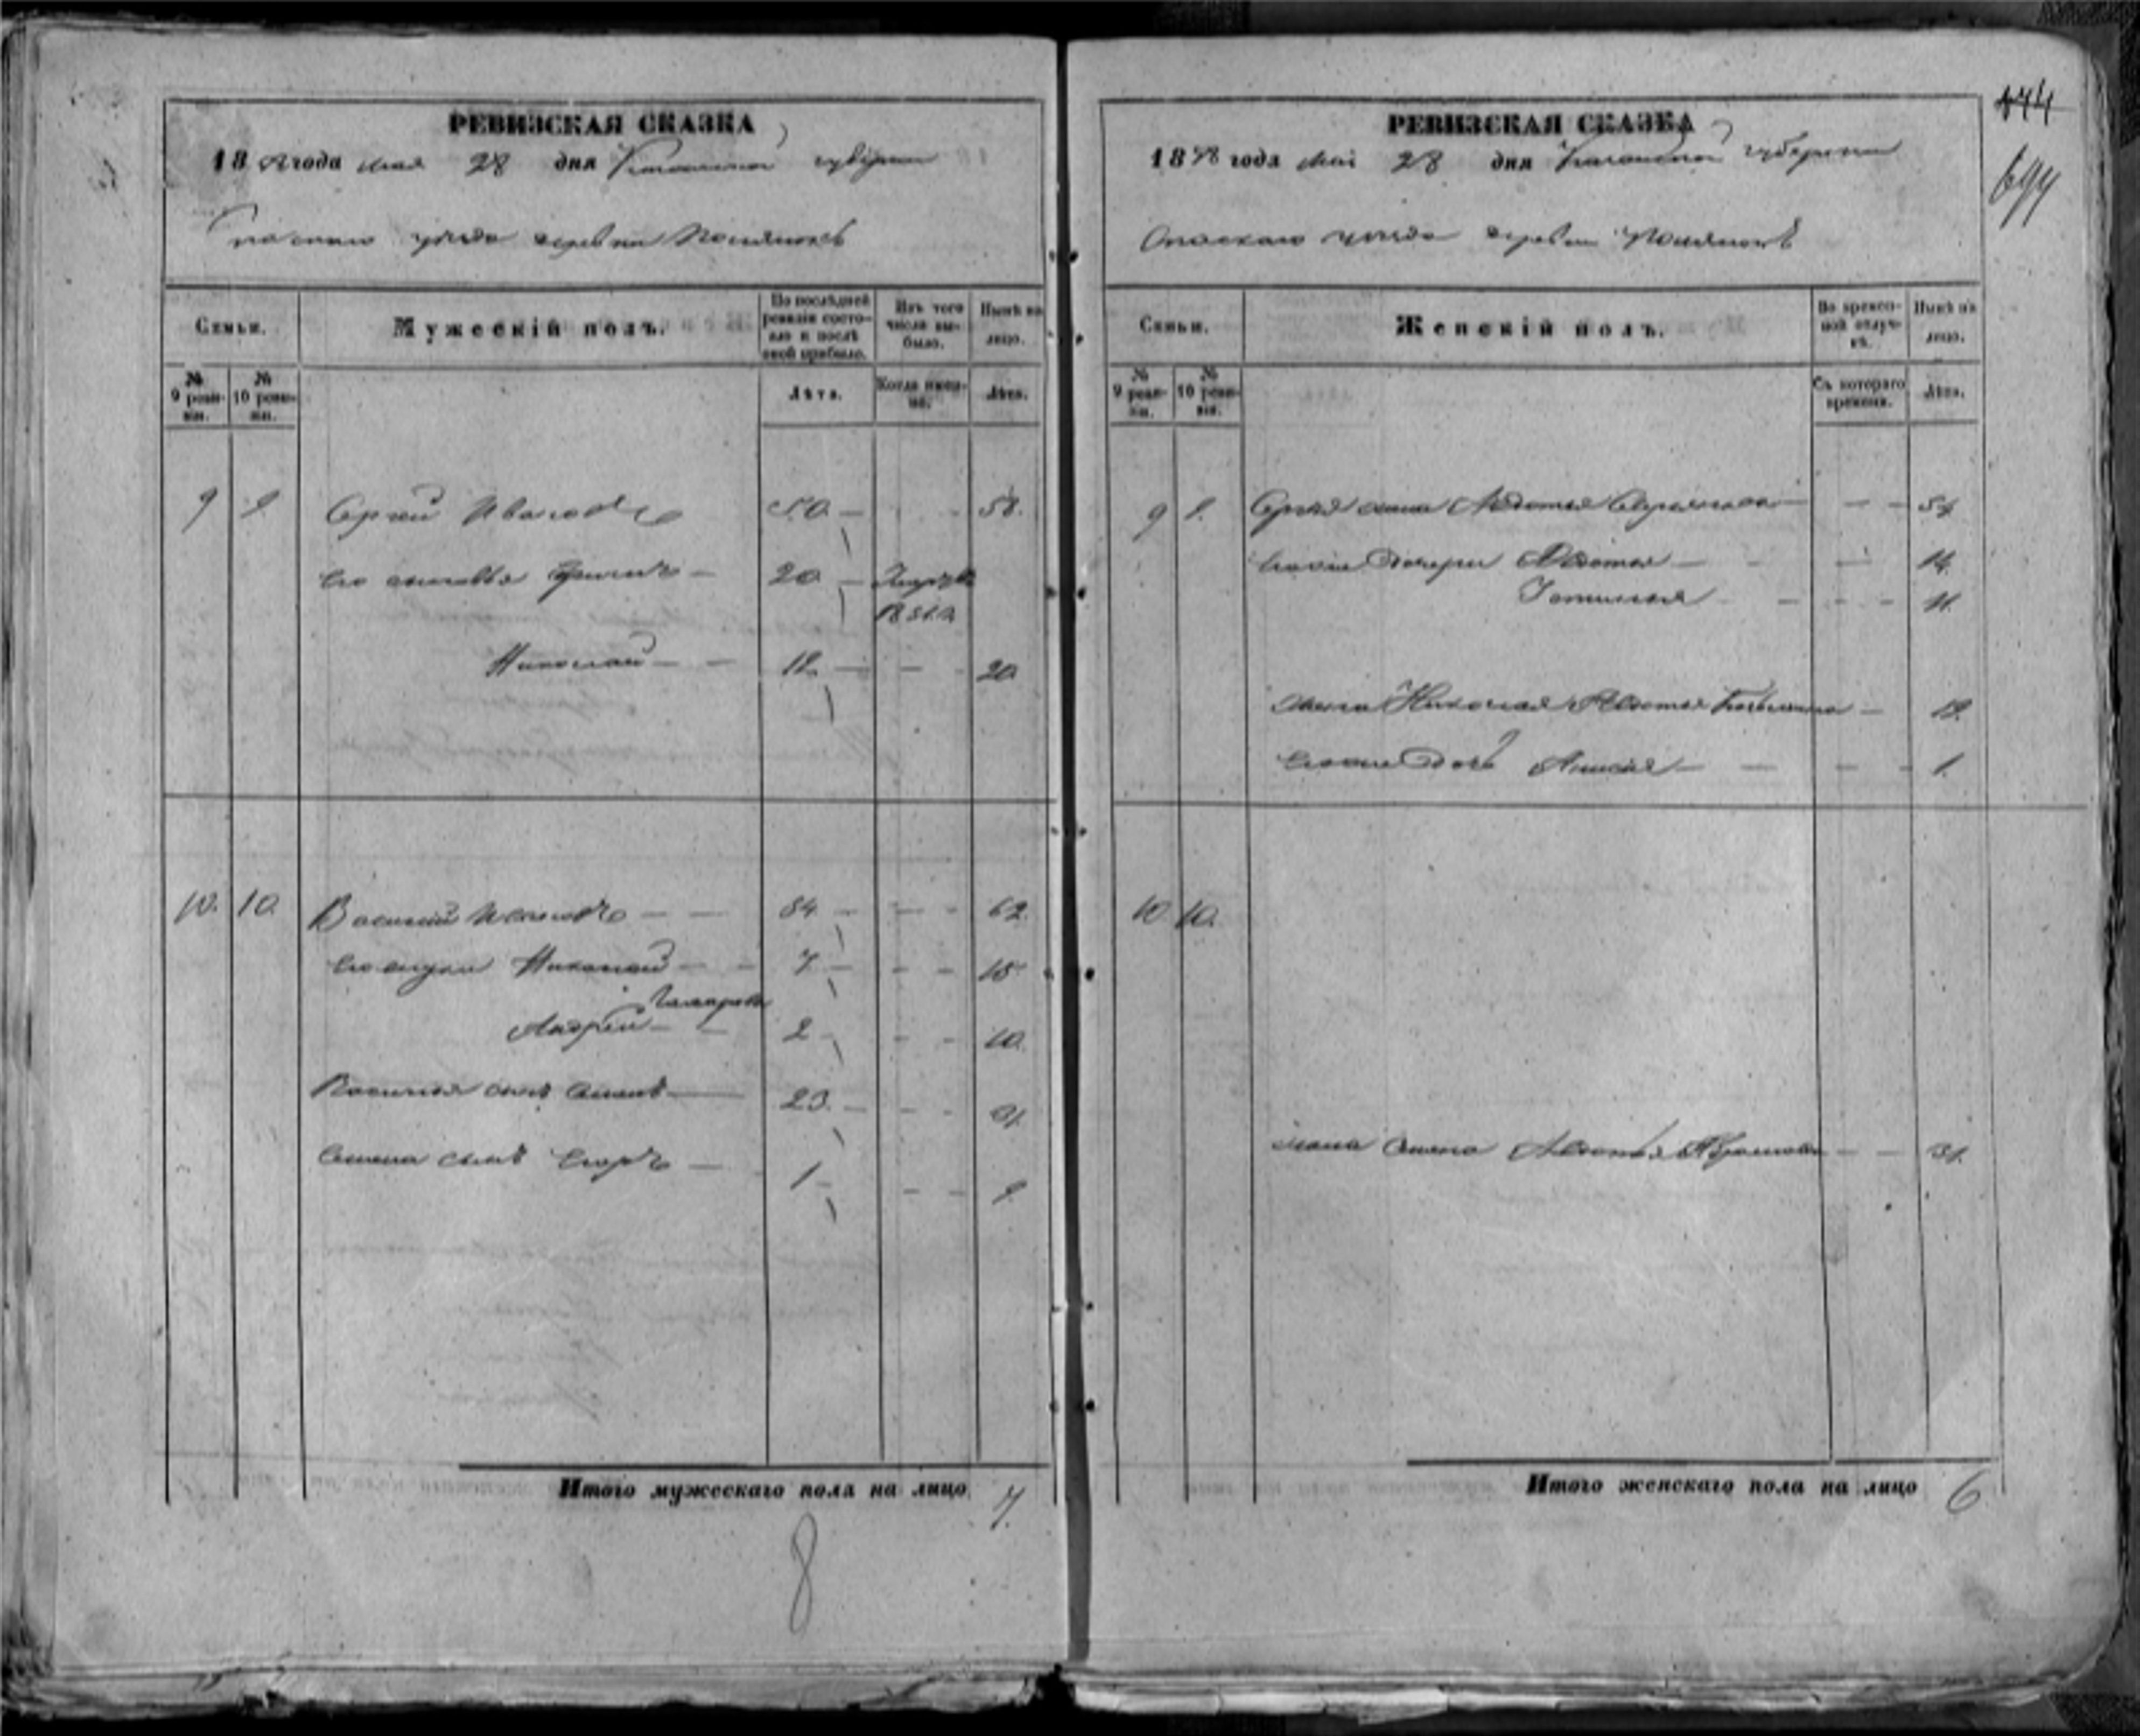 РЕВИЗСКАЯ СКАЗКА
1858 года мая 28 дня Казанской губернии
Спаскаго уѣзда деревни
Семьи.
Мужескій полъ.
По послѣдней ревизіи состояло и послѣ оной прибыло.
Изъ того числа выбыло.
Нынѣ на лицо.
№ 9 ревизіи.
№ 10 ревизіи.
Лѣта.
Когда именно.
Лѣта.
9 9. Сергей Ивановъ 50 — 58.
Его сыновья 20 — 1851.
Николай — — 12 — — 20
10. 10 Василий Ивановъ — — 54 — — — 62
Его внуки Николай — — 7 — — — 15
Андрей — — 2 — — — 10.
Василия сынъ Семенъ — 23. — — — 31
Семена сынъ Егоръ — 1 — — — 9
Итого мужескаго пола на лицо 7.
8
РЕВИЗСКАЯ СКАЗКА
1858 года мая 28 дня Казанской губернии
Спаскаго уѣзда деревни
Семьи.
Женскій полъ.
Во временной отлучкѣ.
Нынѣ на лицо.
№ 9 ревизіи.
№ 10 ревизіи.
Съ котораго времени.
Лѣта.
9 9. Сергея жена Авдотья — — —
Его дочери Авдотья — — — 14.
— — — — 11.
жена Николая Авдотья — 19.
Его дочь Анисья — — — — 1.
10 10.
жена Семена Авдотья Абрамова — — 31.
Итого женскаго пола на лицо 6